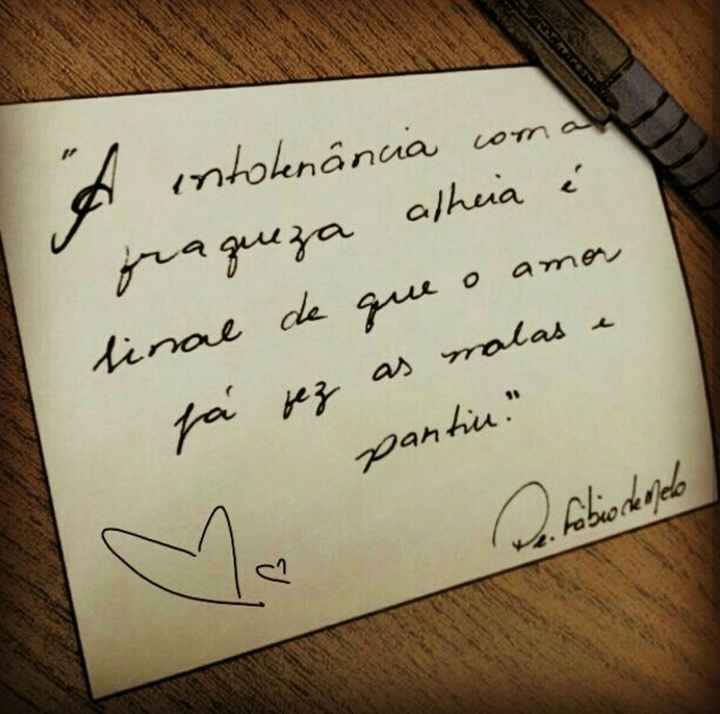 "A intolerância com a
fraqueza alheia é
sinal de que o amor
já fez as malas e
partiu."
Pe. Fábio de Melo